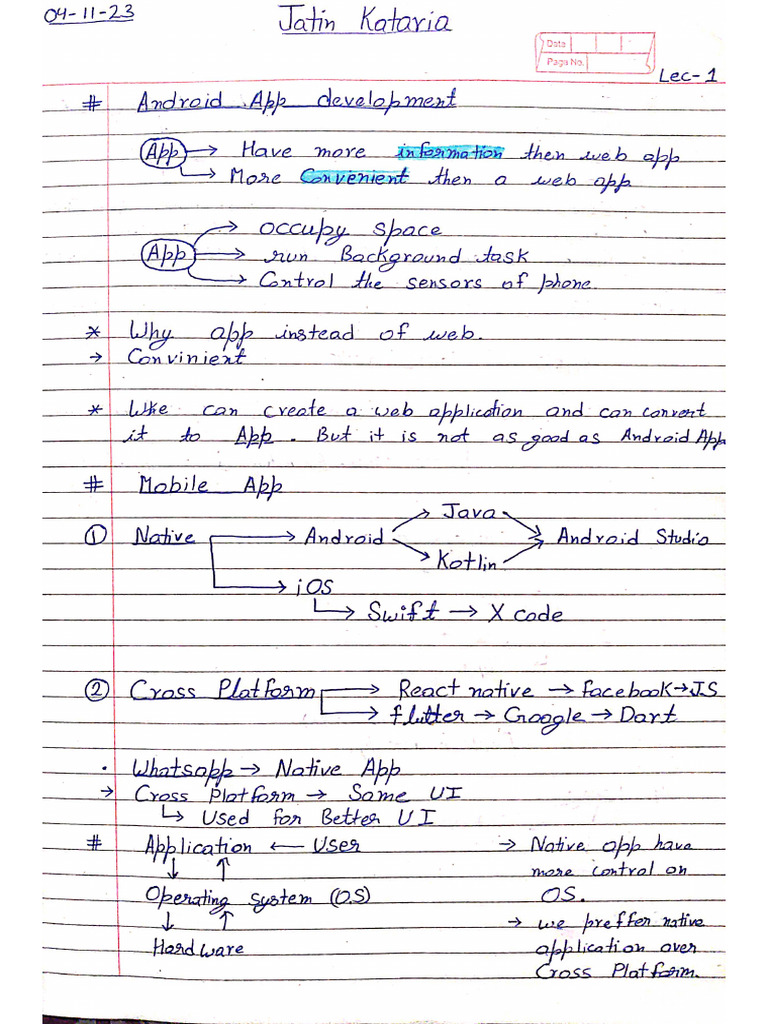 04-11-23
Jatin Kataria
Date
Page No.
Lec-1
# Android App development
App → Have more information then web app
↳ More Convenient then a web app
→ occupy space
App → run Background task
→ Control the sensors of phone.
* Why app instead of web.
→ Convinient
* We can create a web application and can convert
it to App. But it is not as good as Android App
# Mobile App
① Native → Android → Java → Android Studio
→ Kotlin
→ iOS
↳ Swift → X code
② Cross Platform → React native → facebook → JS
→ flutter → Google → Dart
. Whatsapp → Native App
→ Cross Platform → Same UI
↳ Used for Better UI
# Application ← User
↓ ↑
Operating system (OS)
↓ ↑
Hardware
→ Native app have
more control on
OS.
→ we preffer native
application over
Cross Platform.